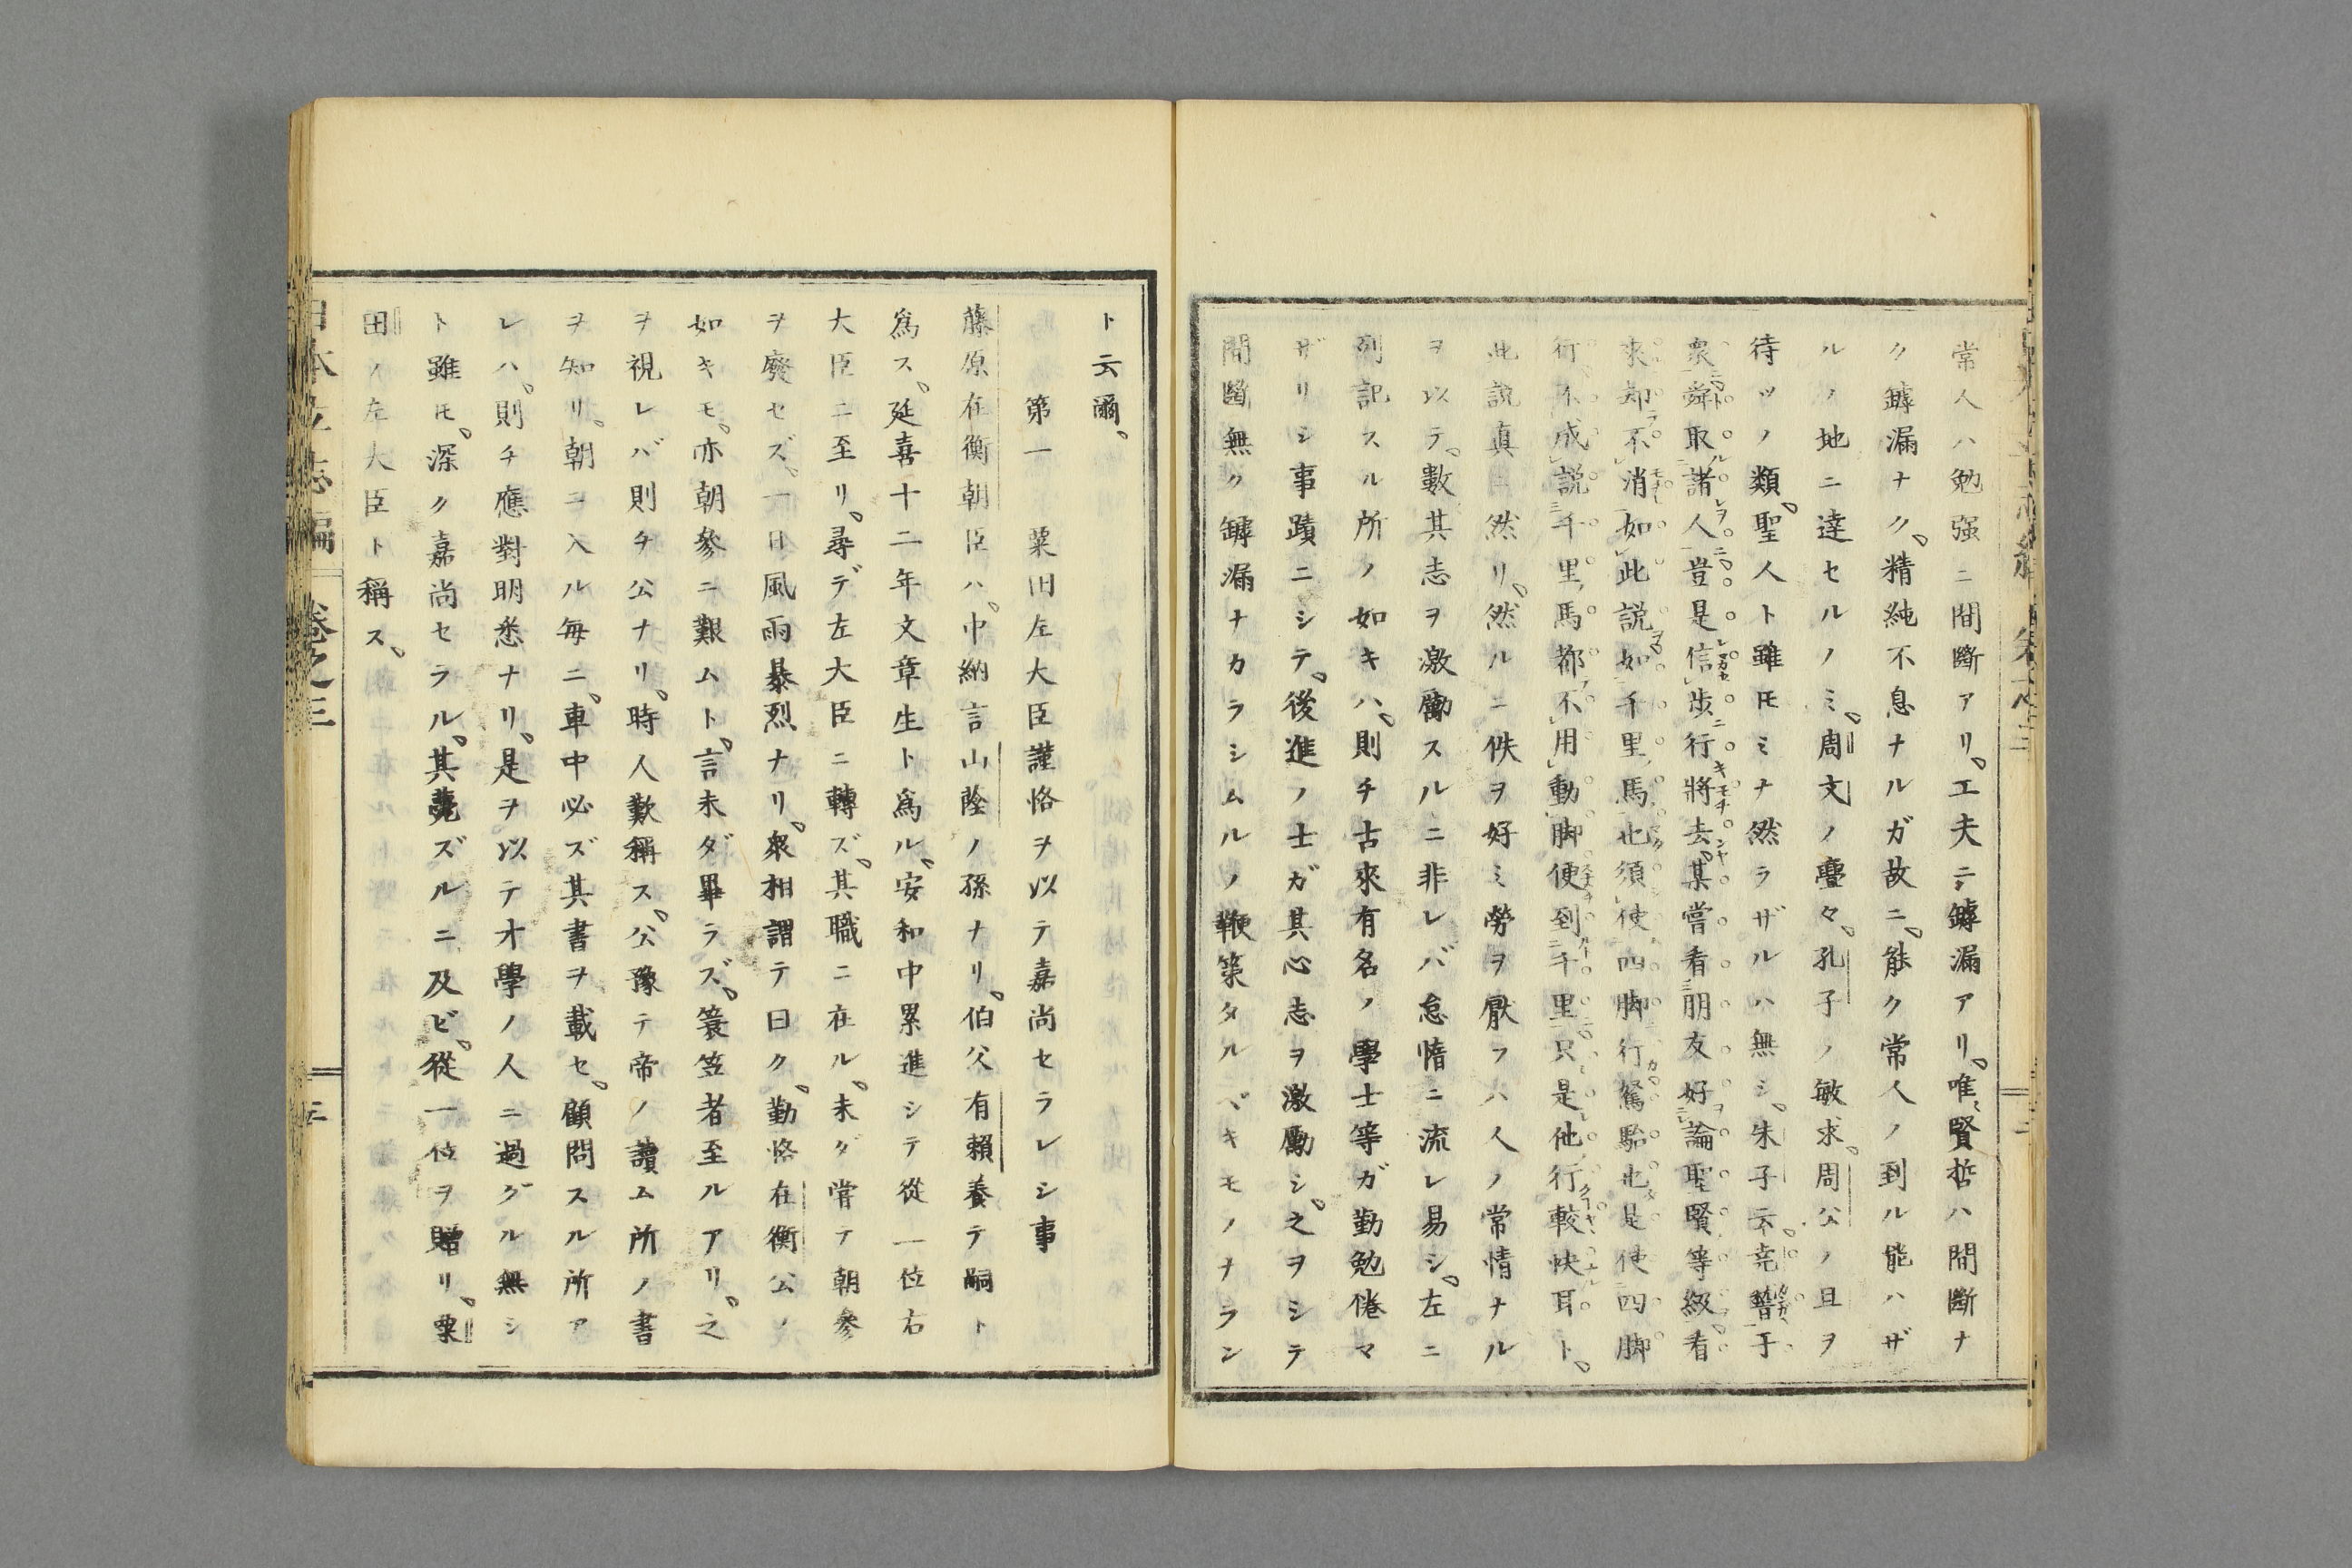 常人ハ勉强ニ間斷アリ。工夫ニ罅漏アリ。唯賢哲ハ間斷ナ
ク罅漏ナク。精純不息ナルガ故ニ。能ク常人ノ到ル能ハザ
ルノ地ニ達セルノミ。周文ノ亹々。孔子ノ敏求。周公ノ旦ヲ
待ツノ類。聖人ト雖𪜈ミナ然ラザルハ無シ。朱子云。堯咨于
衆。舜取諸人。豈是信步行將去。某嘗看朋友好論聖賢等級。看
來却不消如此說。如千里馬也須使四脚行。駑駘也是使四脚
行。不成說千里馬都不用動脚便到千里。只是他行較快耳ト。
此說真ニ然リ。然ルニ佚ヲ好ミ勞ヲ厭フハ人ノ常情ナル
ヲ以テ。數其志ヲ激勵スルニ非レバ怠惰ニ流レ易シ。左ニ
列記スル所ノ如キハ。則チ古來有名ノ學士等ガ勤勉倦マ
ザリシ事蹟ニシテ。後進ノ士ガ其心志ヲ激勵シ。之ヲシテ
間斷無ク罅漏ナカラシムルノ鞭策タルベキモノナラン
ト云爾。
第一 粟田左大臣謹恪ヲ以テ嘉尚セラレシ事
藤原在衡朝臣ハ。中納言山蔭ノ孫ナリ。伯父有賴養テ嗣ト
爲ス。延喜十二年文章生ト爲ル。安和中累進シテ從一位右
大臣ニ至リ。尋デ左大臣ニ轉ズ。其職ニ在ル。未ダ嘗テ朝參
ヲ廢セズ。一日風雨暴烈ナリ。衆相謂テ曰ク。勤恪在衡公ノ
如キモ。亦朝參ニ艱ムト。言未ダ畢ラズ。簑笠者至ルアリ。之
ヲ視レバ則チ公ナリ。時人歎稱ス。公豫テ帝ノ讀ム所ノ書
ヲ知リ。朝ニ入ル每ニ。車中必ズ其書ヲ載セ。顧問スル所ア
レハ。則チ應對明悉ナリ。是ヲ以テ才學ノ人ニ過グル無シ
ト雖𪜈。深ク嘉尚セラル。其薨ズルニ及ビ。從一位ヲ贈リ。粟
田ノ左大臣ト稱ス。
日本立志編 卷之三 三